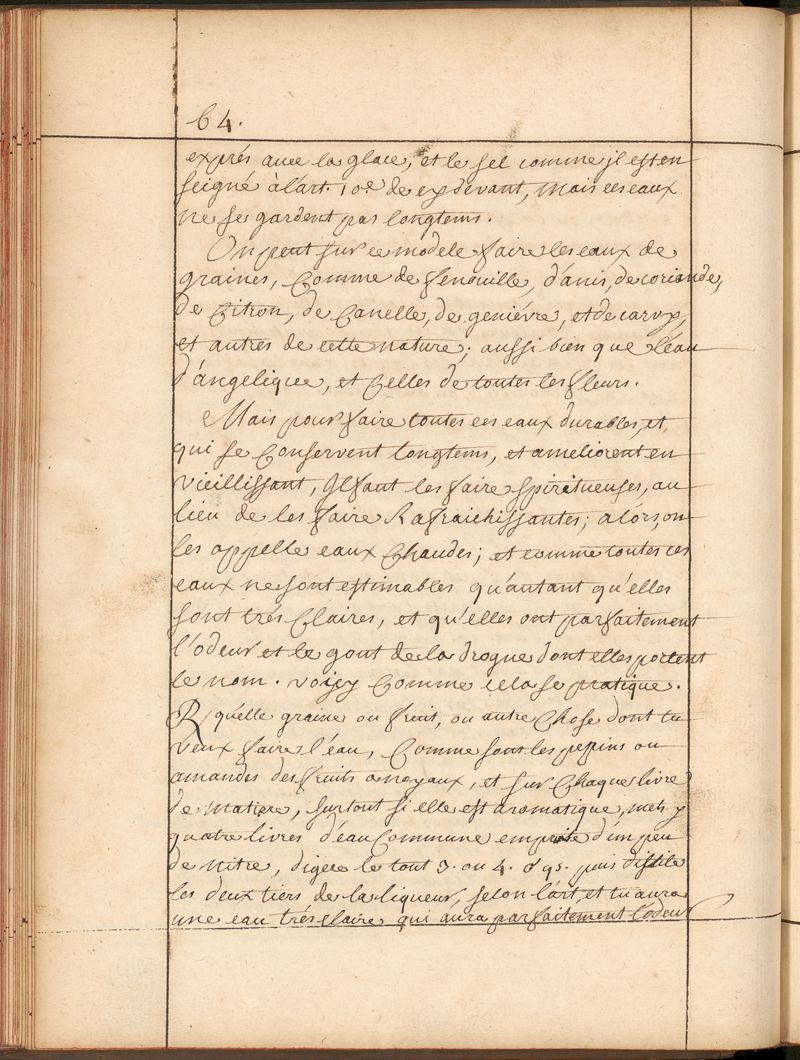 64.
exprés avec la glace, et le sel comme jl est en
seigné à l'art. 10.e de cy devant, mais ces eaux
ne se gardent pas longtems.
On peut sur ce modele faire les eaux de
graines, Comme de fenouille, d'anis, de coriande,
de Citron, de Canelle, de geniévre, et de carvy,
et autres de cette nature; aussi bien que l'eau
d'angelique, et Celles de toutes les fleurs.
Mais pour faire toutes ces eaux durables, et
qui se Conservent longtems, et ameliorent en
vieillissant, Il faut les faire spirituenses, au
lieu de les faire Rafraichissantes; alors, on
les appelle eaux Chaudes; et comme toutes ces
eaux ne sont estimables qu'autant qu'elles
sont trés Claires, et qu'elles ont parfaitement
l'odeur et le gout de la drogue dont elles portent
le nom. voijcy Comme cela se pratique.
R quelle graine ou fruit, ou autre Chose dont tu
veux faire l'eau, Comme sont les pepins ou
amandes des fruits a noyaux, et sur Chaque livre
de matiere, surtout si elle est aromatique, mets y
quatre livres d'eau Commune empreite d'un peu
de nitre, digere le tout 3. ou 4. puis distile
les deux tiers de la liqueur, selon l'art, et tu aura
une eau trés claire qui aura parfaitement l'odeur